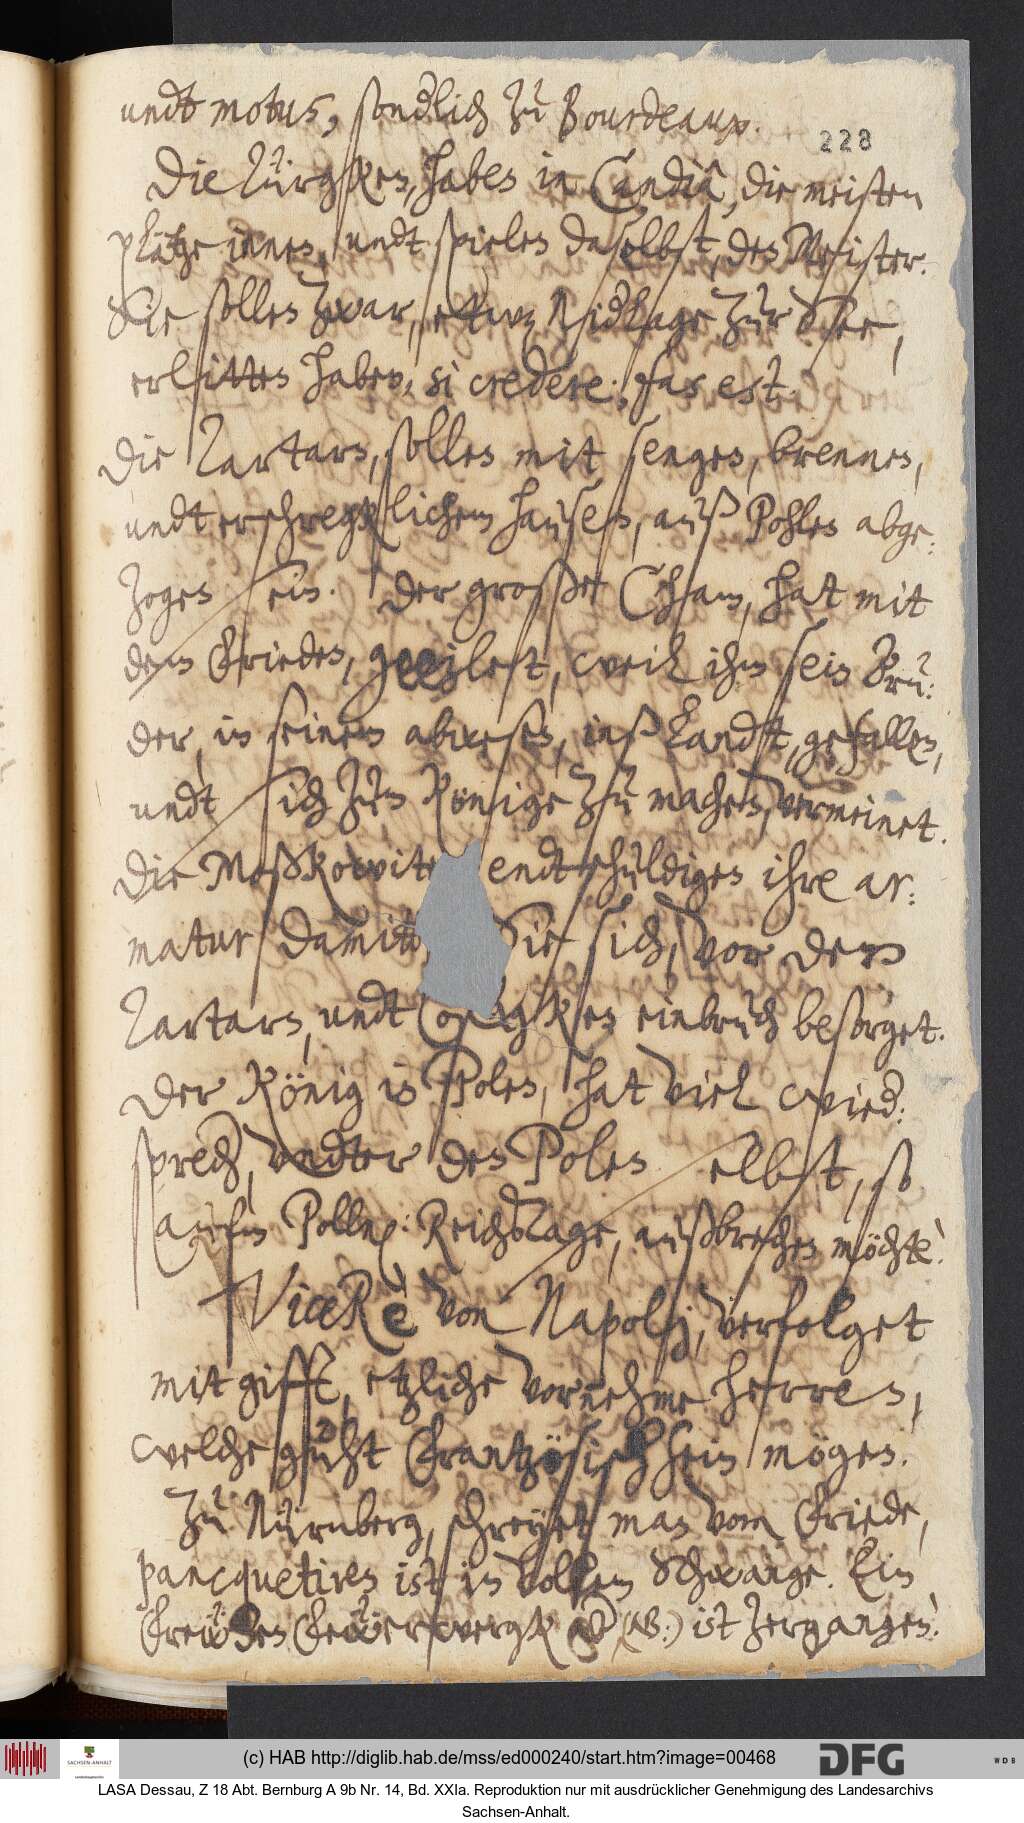 undt motus, sonderlich zu Bourdeaux.
228
Die Türgken, haben in Candia, die meisten
plätze innen, undt spielen daselbst, den Meister.
Sie sollen zwar, etwaz Niderlage zur See,
erlitten haben, si credere, fas est.
Die Tartarn, sollen mit sengen, brennen,
undt erschregklichem hausen, auß Pohlen abge:
zogen sein. Der große Cham, hat mit
dem Frieden, geeilet, weil ihm sein Bru:
der, in seinem abwesen, inß Landt, gefallen,
undt sich zum Könige zu machen, vermeinet.
Die Moßkowite endtschuldigen ihre ar:
matur damitt Sie sich, vor dem
Tartarn, undt Cosagken einbruch besorget.
Der König in Polen, hat viel wied:
sprech, undter den Polen selbst, so
aufm Pollnischen: Reichstage, außbrechen möchte!
ViceRè von Napolj, verfolget
mit gifft, etzliche vornehme herren,
welche guht Frantzösisch sein mögen.
Zu Nürnberg, schreyet man vom Friede,
pancquetiren ist in vollem Schwange. Ein
Freüden Feüerwergk (NB:) ist zergangen!
(c) HAB http://diglib.hab.de/mss/ed000240/start.htm?image=00468
SACHSEN-ANHALT
DFG
WDB
LASA Dessau, Z 18 Abt. Bernburg A 9b Nr. 14, Bd. XXIa. Reproduktion nur mit ausdrücklicher Genehmigung des Landesarchivs
Sachsen-Anhalt.